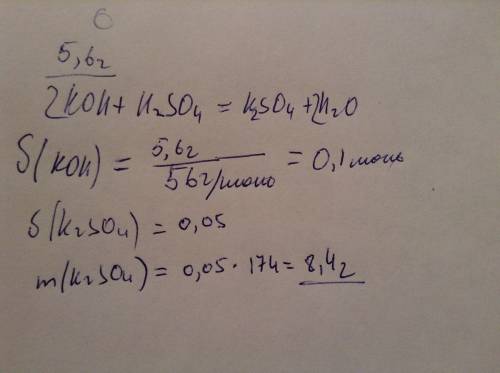 6
5,6г
2KOH + H2SO4 = K2SO4 + 2H2O
S(KOH) = 5,6г / 56г/моль = 0,1 моль
S(K2SO4) = 0,05
m(K2SO4) = 0,05 · 174 = 8,4г